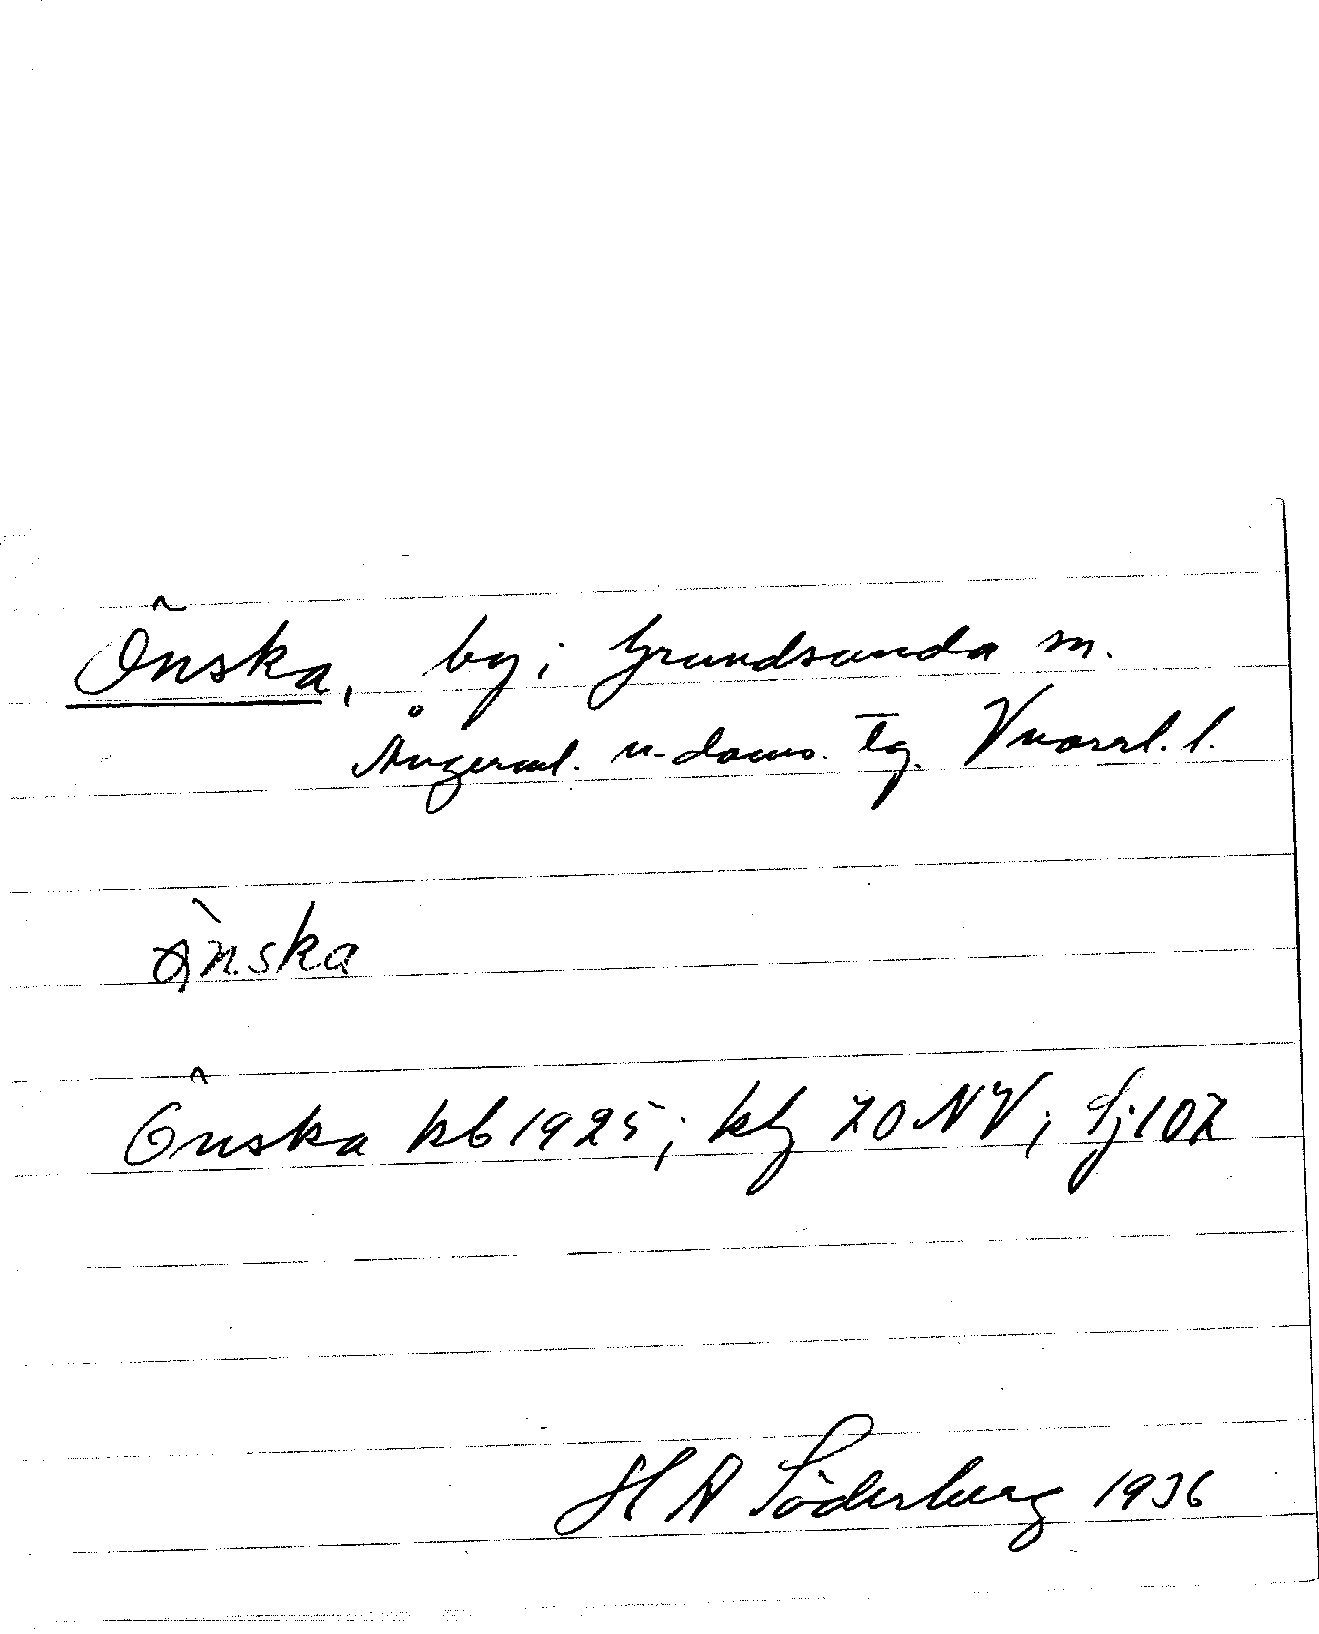 Önska, by i Grundsunda sn.
Ångerml. n. doms. tg. Vnorrl. l.
ö̀nska
Önska kb 1925; kbl 70 NV; Sj 102
H A Söderberg 1936